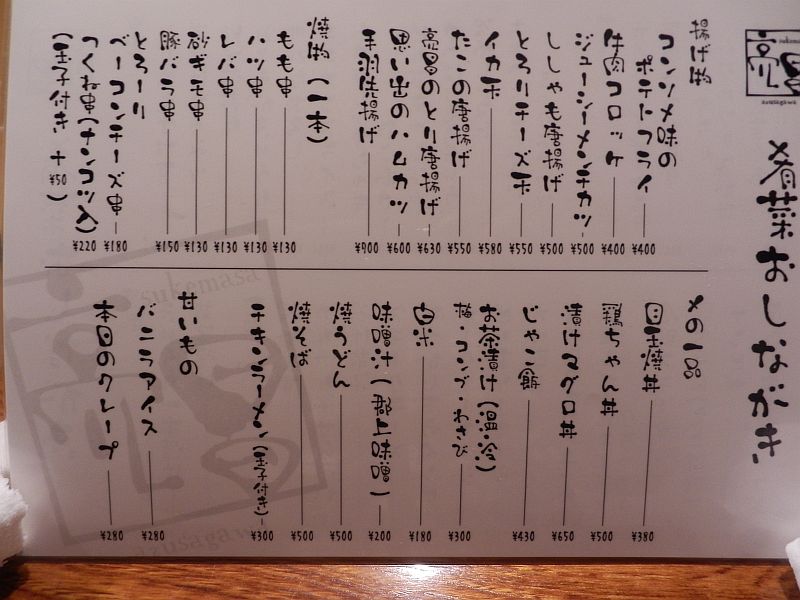 〆肴菜おしながき
揚げ物
コンソメ味の
ポテトフライ ¥400
牛肉コロッケ ¥400
ジューシーメンチカツ ¥500
ししゃも唐揚げ ¥500
とろりチーズ天 ¥550
イカ天 ¥580
たこの唐揚げ ¥550
亮昌のとり唐揚げ ¥630
思い出のハムカツ ¥600
手羽先揚げ ¥900
焼物(一本)
もも串 ¥130
ハツ串 ¥130
レバ串 ¥130
砂ギモ串 ¥130
豚バラ串 ¥150
とろーり
ベーコンチーズ串 ¥180
つくね串(ナンコツ入) ¥220
(玉子付き + ¥50)
〆の一品
目玉焼丼 ¥380
鶏ちゃん丼 ¥500
漬けマグロ丼 ¥650
じゃこ飯 ¥430
お茶漬け(温・冷)
梅・コンブ・わさび ¥300
白米 ¥180
味噌汁(郡上味噌) ¥200
焼うどん ¥500
焼そば ¥500
チキンラーメン(玉子付き) ¥300
甘いもの
バニラアイス ¥280
本日のクレープ ¥280
sukemasa
azusagawa